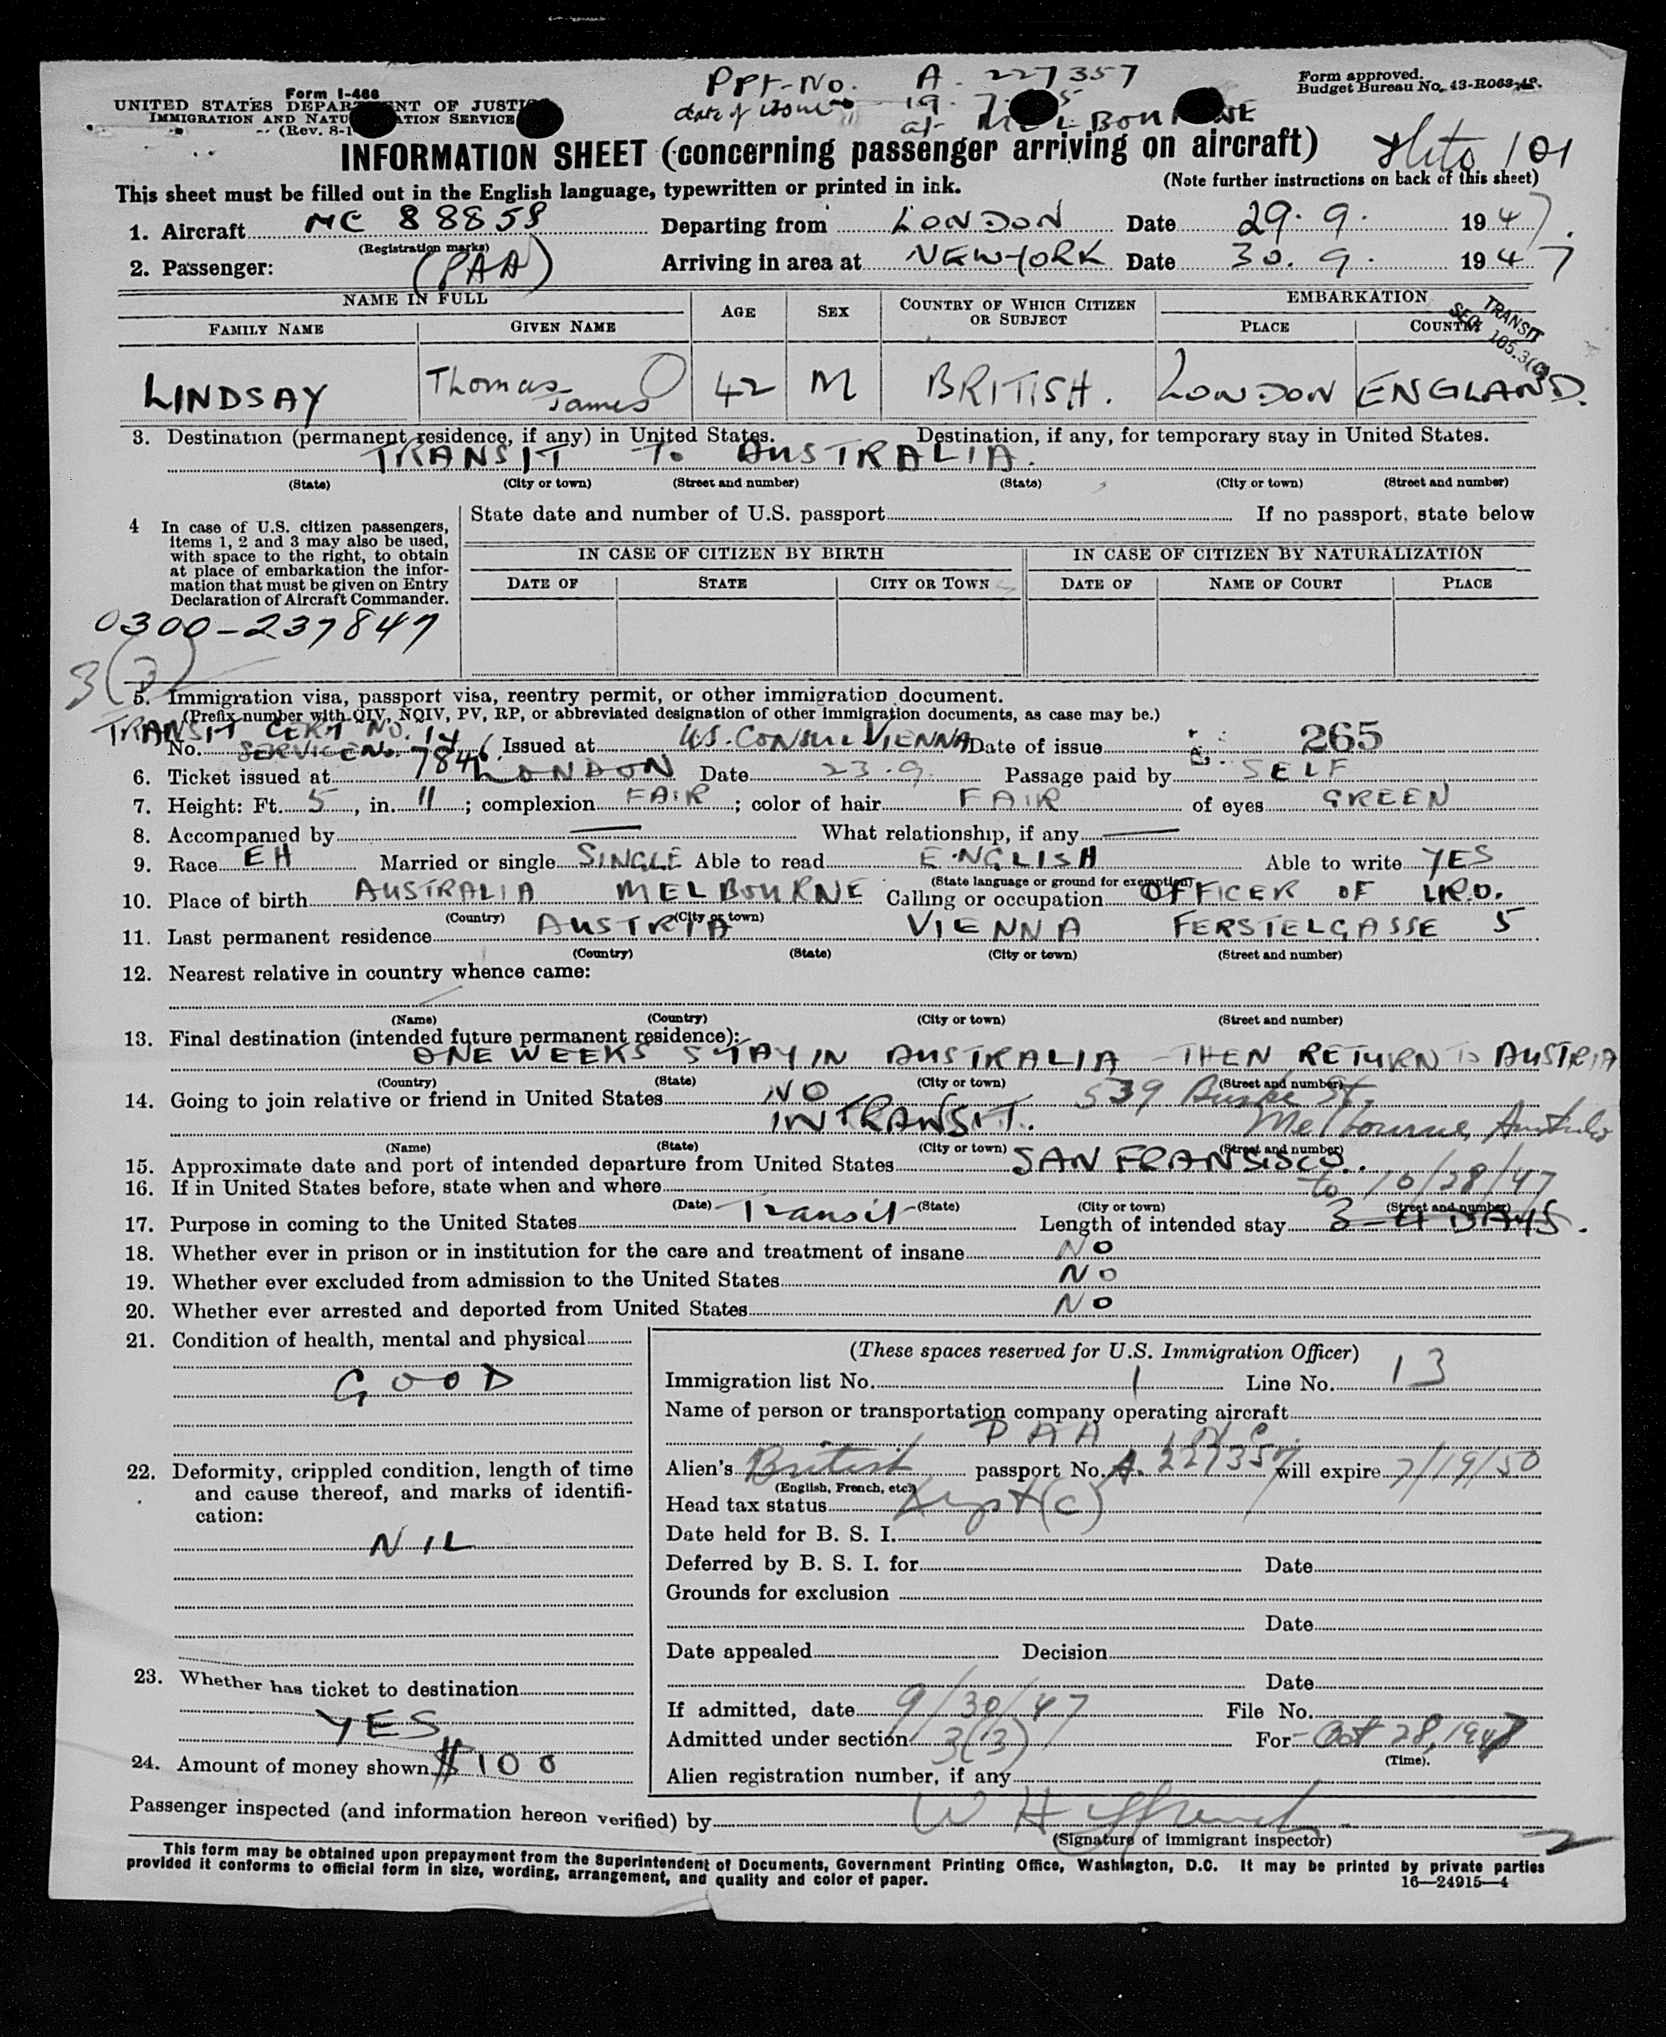 Ppt-No. A. 227357
Form I-466
Form approved.
Budget Bureau No. 43-R063-42.
UNITED STATES DEPARTMENT OF JUSTICE
date of issue 19. 7. 5
IMMIGRATION AND NATURALIZATION SERVICE
at MELBOURNE
(Rev. 8-1
INFORMATION SHEET (concerning passenger arriving on aircraft)
101
This sheet must be filled out in the English language, typewritten or printed in ink.
(Note further instructions on back of this sheet)
1. Aircraft NC 88858 Departing from LONDON Date 29. 9. 1947.
(Registration marks)
2. Passenger: (PAA) Arriving in area at NEW YORK Date 30. 9. 1947
NAME IN FULL AGE SEX COUNTRY OF WHICH CITIZEN OR SUBJECT EMBARKATION
FAMILY NAME GIVEN NAME PLACE COUNTRY
TRANSIT
SEC. 105.3(a)
LINDSAY Thomas James 42 M BRITISH. LONDON ENGLAND.
3. Destination (permanent residence, if any) in United States. Destination, if any, for temporary stay in United States.
TRANSIT To AUSTRALIA.
(State) (City or town) (Street and number) (State) (City or town) (Street and number)
4 In case of U.S. citizen passengers,
items 1, 2 and 3 may also be used,
with space to the right, to obtain
at place of embarkation the infor-
mation that must be given on Entry
Declaration of Aircraft Commander.
State date and number of U.S. passport If no passport, state below
IN CASE OF CITIZEN BY BIRTH IN CASE OF CITIZEN BY NATURALIZATION
DATE OF STATE CITY OR TOWN DATE OF NAME OF COURT PLACE
0300-237847
3(3)
5. Immigration visa, passport visa, reentry permit, or other immigration document.
(Prefix number with QIV, NQIV, PV, RP, or abbreviated designation of other immigration documents, as case may be.)
TRANSIT CERT NO. 14
No. SERVICE No. 7846 Issued at U.S. CONSUL VIENNA Date of issue 265
6. Ticket issued at LONDON Date 23.9. Passage paid by SELF
7. Height: Ft. 5, in. 11; complexion FAIR; color of hair FAIR of eyes GREEN
8. Accompanied by — What relationship, if any —
9. Race EH Married or single SINGLE Able to read ENGLISH Able to write YES
(State language or ground for exemption)
10. Place of birth AUSTRALIA MELBOURNE Calling or occupation OFFICER OF I.R.O.
(Country) (City or town)
11. Last permanent residence AUSTRIA VIENNA FERSTELGASSE 5
(Country) (State) (City or town) (Street and number)
12. Nearest relative in country whence came:
(Name) (Country) (City or town) (Street and number)
13. Final destination (intended future permanent residence):
ONE WEEKS STAY IN AUSTRALIA - THEN RETURN To AUSTRIA
(Country) (State) (City or town) (Street and number)
14. Going to join relative or friend in United States NO 539 Burke St.
IN TRANSIT. Melbourne, Australia
(Name) (State) (City or town) (Street and number)
15. Approximate date and port of intended departure from United States SAN FRANSISCO.
16. If in United States before, state when and where to 10/28/47
(Date) (State) (City or town) (Street and number)
17. Purpose in coming to the United States Transit Length of intended stay 3-4 DAYS.
18. Whether ever in prison or in institution for the care and treatment of insane NO
19. Whether ever excluded from admission to the United States NO
20. Whether ever arrested and deported from United States NO
21. Condition of health, mental and physical
GOOD
22. Deformity, crippled condition, length of time
and cause thereof, and marks of identifi-
cation:
NIL
23. Whether has ticket to destination
YES
24. Amount of money shown $100
(These spaces reserved for U.S. Immigration Officer)
Immigration list No. 1 Line No. 13
Name of person or transportation company operating aircraft
PAA
Alien's British passport No. A. 227357 will expire 7/19/50
(English, French, etc.)
Head tax status (c)
Date held for B. S. I.
Deferred by B. S. I. for Date
Grounds for exclusion
Date
Date appealed Decision
Date
If admitted, date 9/30/47 File No.
Admitted under section 3(3) For Oct 28, 1947
(Time).
Alien registration number, if any
Passenger inspected (and information hereon verified) by W H
(Signature of immigrant inspector)
2
This form may be obtained upon prepayment from the Superintendent of Documents, Government Printing Office, Washington, D.C. It may be printed by private parties
provided it conforms to official form in size, wording, arrangement, and quality and color of paper.
16—24915—4